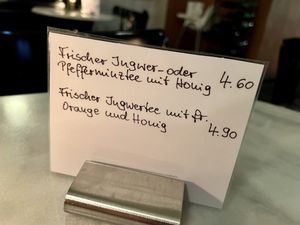 Frischer Ingwer- oder
Pfefferminztee mit Honig 4.60
Frischer Ingwertee mit fr.
Orange und Honig 4.90